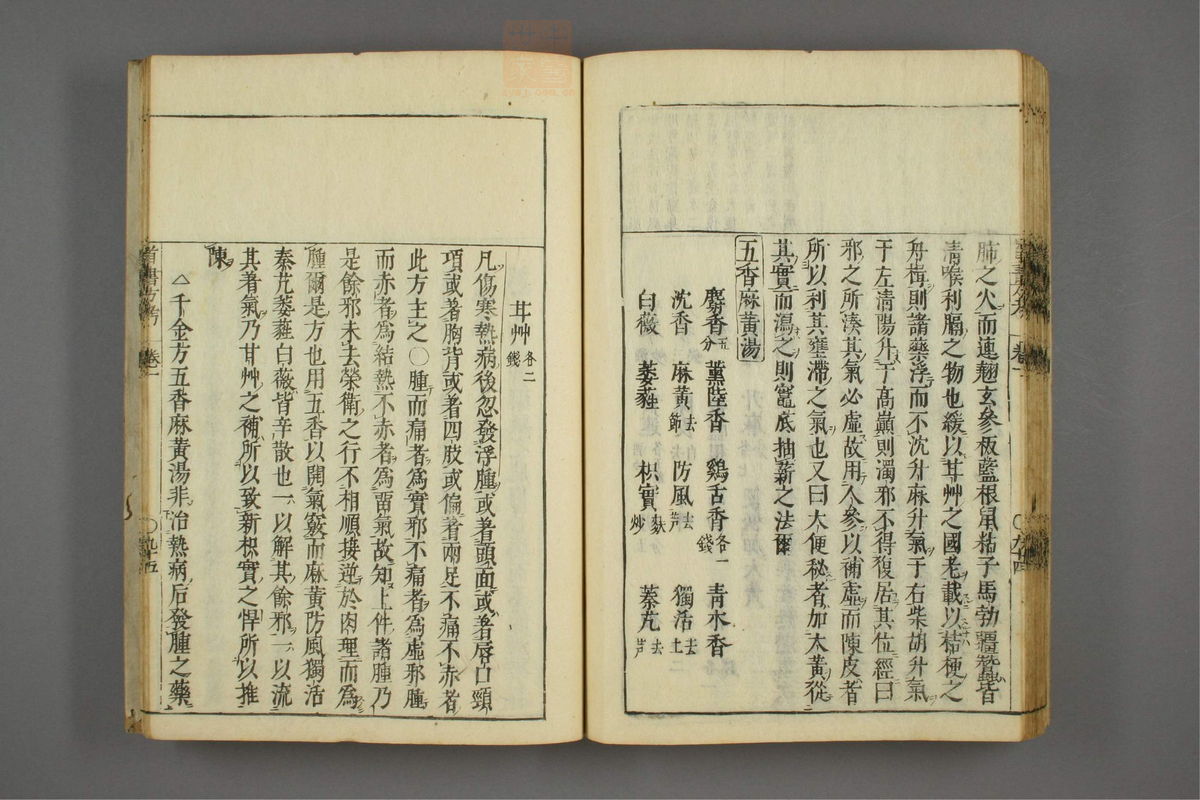 肺之火而連翹玄參板藍根鼠粘子馬勃殭蠶皆
清喉利膈之物也緩以甘艸之國老載以桔梗之
舟楫則諸藥浮而不沈升麻升氣于右柴胡升氣
于左清陽升于高巔則濁邪不得復居其位經曰
邪之所湊其氣必虛故用人參以補虛而陳皮者
所以利其壅滯之氣也又曰大便秘者加大黃從
其實而瀉之則竈底抽薪之法爾
五香麻黃湯
麝香五分 薰陸香 鷄舌香各一錢 青木香
沈香 麻黃去節 防風去芦 獨活去土二
白薇 萎蕤 枳實麩炒 蓁艽去芦
甘艸各二錢
凡傷寒熱病後忽發浮腫或著頭面或著唇口頸
項或著胸背或著四肢或偏著兩足不痛不赤者
此方主之〇腫而痛者爲實邪不痛者爲虛邪腫
而赤者爲結熱不赤者爲畱氣故知上件諸腫乃
是餘邪未去榮衛之行不相順接逆於肉理而爲
腫爾是方也用五香以開氣竅而麻黃防風獨活
秦艽萎蕤白薇皆辛散也一以解其餘邪一以流
其著氣乃甘艸之補所以致新枳實之悍所以推
陳
△千金方五香麻黃湯非治熱病后發腫之藥
卷一
〇九十四
首書方考
卷一
〇九十五